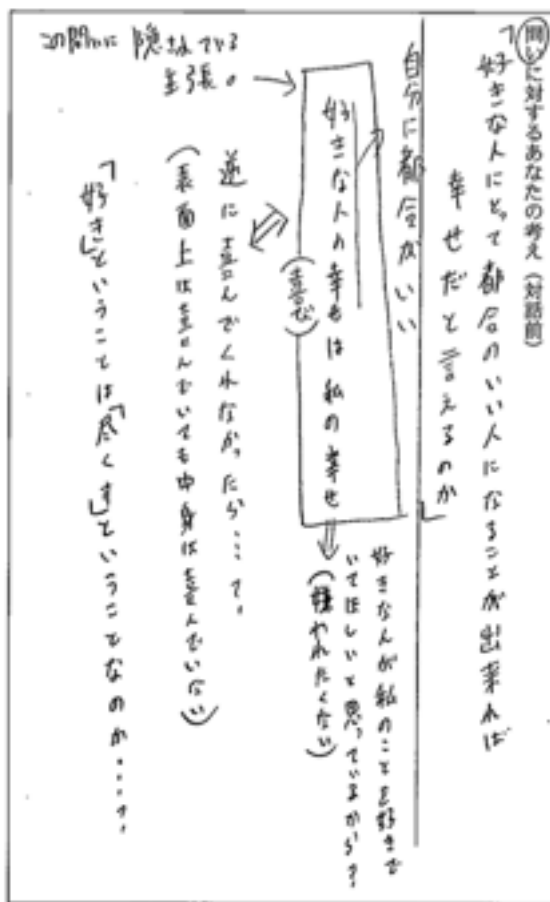 問いに対するあなたの考え（対話前）
「好きな人にとって都合のいい人になることが出来れば
幸せだと言えるのか」
自分に都合がいい
好きな人の幸せは私の幸せ
（喜び）
この問いに隠されている
主張。
好きな人が私のことを好きで
いてほしいと思っているから？
（嫌われたくない）
逆に喜んでくれなかったら…？
（表面上は喜んでいても中身は喜んでいない）
「好き」ということは「尽くす」ということなのか…？